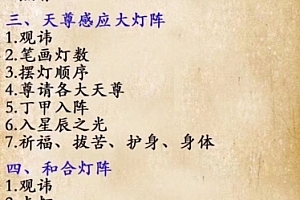 三、天尊感应大灯阵
1.观讳
2.笔画灯数
3.摆灯顺序
4.尊请各大天尊
5.丁甲入阵
6.入星辰之光
7.祈福、拔苦、护身、身体
四、和合灯阵
1.观讳